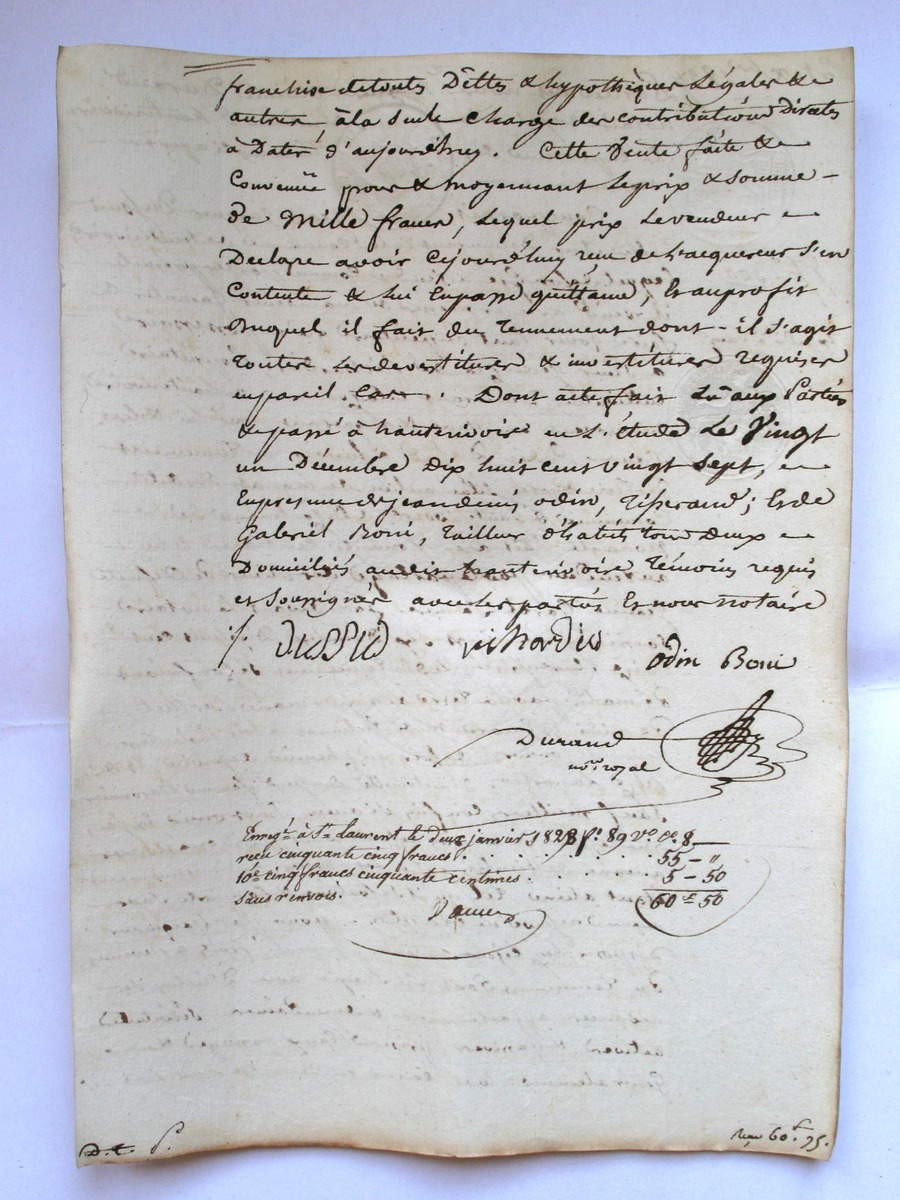 franchise de touts Dêttes & hypothèques Légales &
autres, à la seule Charge des contributions Directes
à Dater d'aujourdhuy. Cette Vente faite &
Convenue pour & moyennant le prix & somme
de Mille francs, lequel prix le vendeur
Déclare avoir cejourd'huy reçu de l'acquereur s'en
Contente & lui en passe quittance, Et au profit
Duquel il fait du tennement dont il s'agit
toutes les devestitures & investitures requises
en pareil Cas. Dont acte fait Lû aux Parties
& passé à hauterivoire en L'étude Le Vingt
un Décembre Dix huit cent vingt sept,
En présence de jean denis odin, Tisserand; Et de
Gabriel Boni, tailleur d'habits tous Deux
Domiciliés audit hauterivoire Témoins requis
et Soussignés avec les parties Et nous notaire
odin Boni
Durand
nore royal
Enregé à St Laurent le deux janvier 1828 fo 89 vo Ce 8
reçu cinquante cinq francs. 55 - "
10e cinq francs cinquante centimes. 5 - 50
Sans renvois. 60 f 50
Reçu 60 f 95.